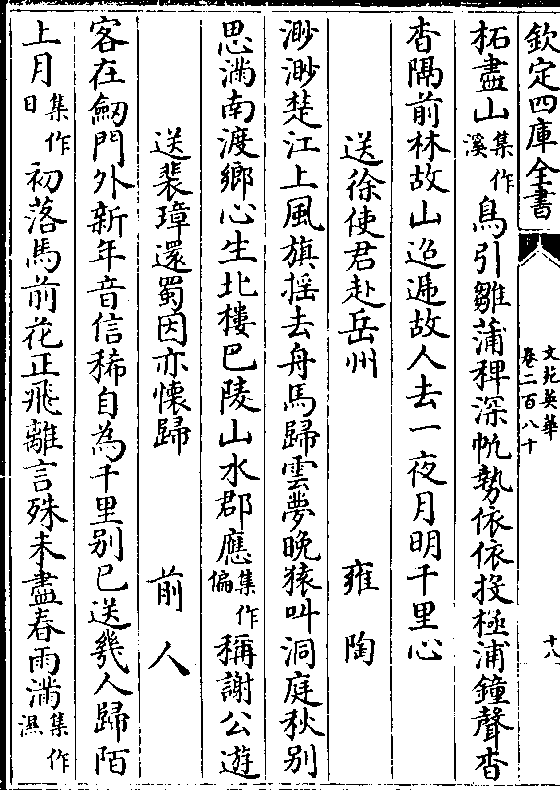 欽定四庫全書
文苑英華
卷二百八十
十八
柘盡山集作溪鳥引雛蒲稗深帆勢依依投極浦鐘聲杳
杳隔前林故山迢遞故人去一夜月明千里心
送徐使君赴岳州 雍陶
渺渺楚江上風旗揺去舟馬歸雲夢晚猿叫洞庭秋别
思滿南渡鄉心生北樓巴陵山水郡應集作偏稱謝公遊
送裴璋還蜀因亦懷歸 前人
客在劒門外新年音信稀自為千里别已送㡬人歸陌
上月集作日初落馬前花正飛離言殊未盡春雨滿集作濕